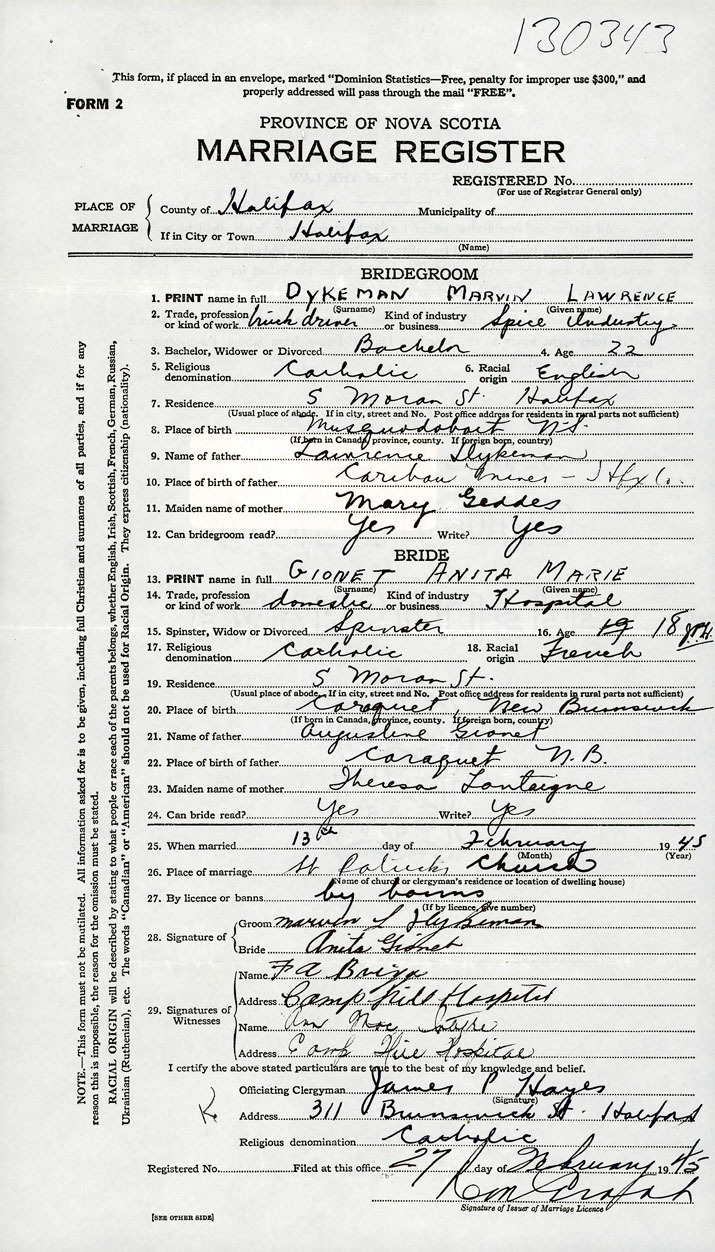 130343
This form, if placed in an envelope, marked "Dominion Statistics—Free, penalty for improper use $300," and
properly addressed will pass through the mail "FREE".
FORM 2
PROVINCE OF NOVA SCOTIA
MARRIAGE REGISTER
REGISTERED No.
(For use of Registrar General only)
PLACE OF MARRIAGE
County of Halifax Municipality of
If in City or Town Halifax
(Name)
BRIDEGROOM
1. PRINT name in full DYKEMAN MARVIN LAWRENCE
(Surname) (Given name)
2. Trade, profession or kind of work truck driver Kind of industry or business Spice Industry
3. Bachelor, Widower or Divorced Bachelor 4. Age 22
5. Religious denomination Catholic 6. Racial origin English
7. Residence 5 Moran St. Halifax
(Usual place of abode. If in city, street and No. Post office address for residents in rural parts not sufficient)
8. Place of birth Musquodoboit N.S.
(If born in Canada, province, county. If foreign born, country)
9. Name of father Lawrence Dykeman
10. Place of birth of father Caribou Mines - Hfx Co.
11. Maiden name of mother Mary Geddes
12. Can bridegroom read? Yes Write? Yes
BRIDE
13. PRINT name in full GIONET ANITA MARIE
(Surname) (Given name)
14. Trade, profession or kind of work domestic Kind of industry or business Hospital
15. Spinster, Widow or Divorced Spinster 16. Age 19 18
17. Religious denomination Catholic 18. Racial origin French
19. Residence 5 Moran St.
(Usual place of abode. If in city, street and No. Post office address for residents in rural parts not sufficient)
20. Place of birth Caraquet, New Brunswick
(If born in Canada, province, county. If foreign born, country)
21. Name of father Augustine Gionet
22. Place of birth of father Caraquet N.B.
23. Maiden name of mother Theresa Lantaigne
24. Can bride read? Yes Write? Yes
25. When married 13th day of February 1945
(Month) (Year)
26. Place of marriage St Patricks Church
(Name of church or clergyman's residence or location of dwelling house)
27. By licence or banns by banns
(If by licence, give number)
28. Signature of
Groom Marvin L Dykeman
Bride Anita Gionet
29. Signatures of Witnesses
Name F A
Address Camp Hill Hospital
Name Ann Mac Intyre
Address Camp Hill Hospital
I certify the above stated particulars are true to the best of my knowledge and belief.
Officiating Clergyman James P Hayes
(Signature)
Address 311 Brunswick St. Halifax
Religious denomination Catholic
Registered No. Filed at this office 27 day of February 1945
Signature of Issuer of Marriage Licence
[SEE OTHER SIDE]
NOTE.—This form must not be mutilated. All information asked for is to be given, including full Christian and surnames of all parties, and if for any
reason this is impossible, the reason for the omission must be stated.
RACIAL ORIGIN will be described by stating to what people or race each of the parents belongs, whether English, Irish, Scottish, French, German, Russian,
Ukrainian (Ruthenian), etc. The words "Canadian" or "American" should not be used for Racial Origin. They express citizenship (nationality).